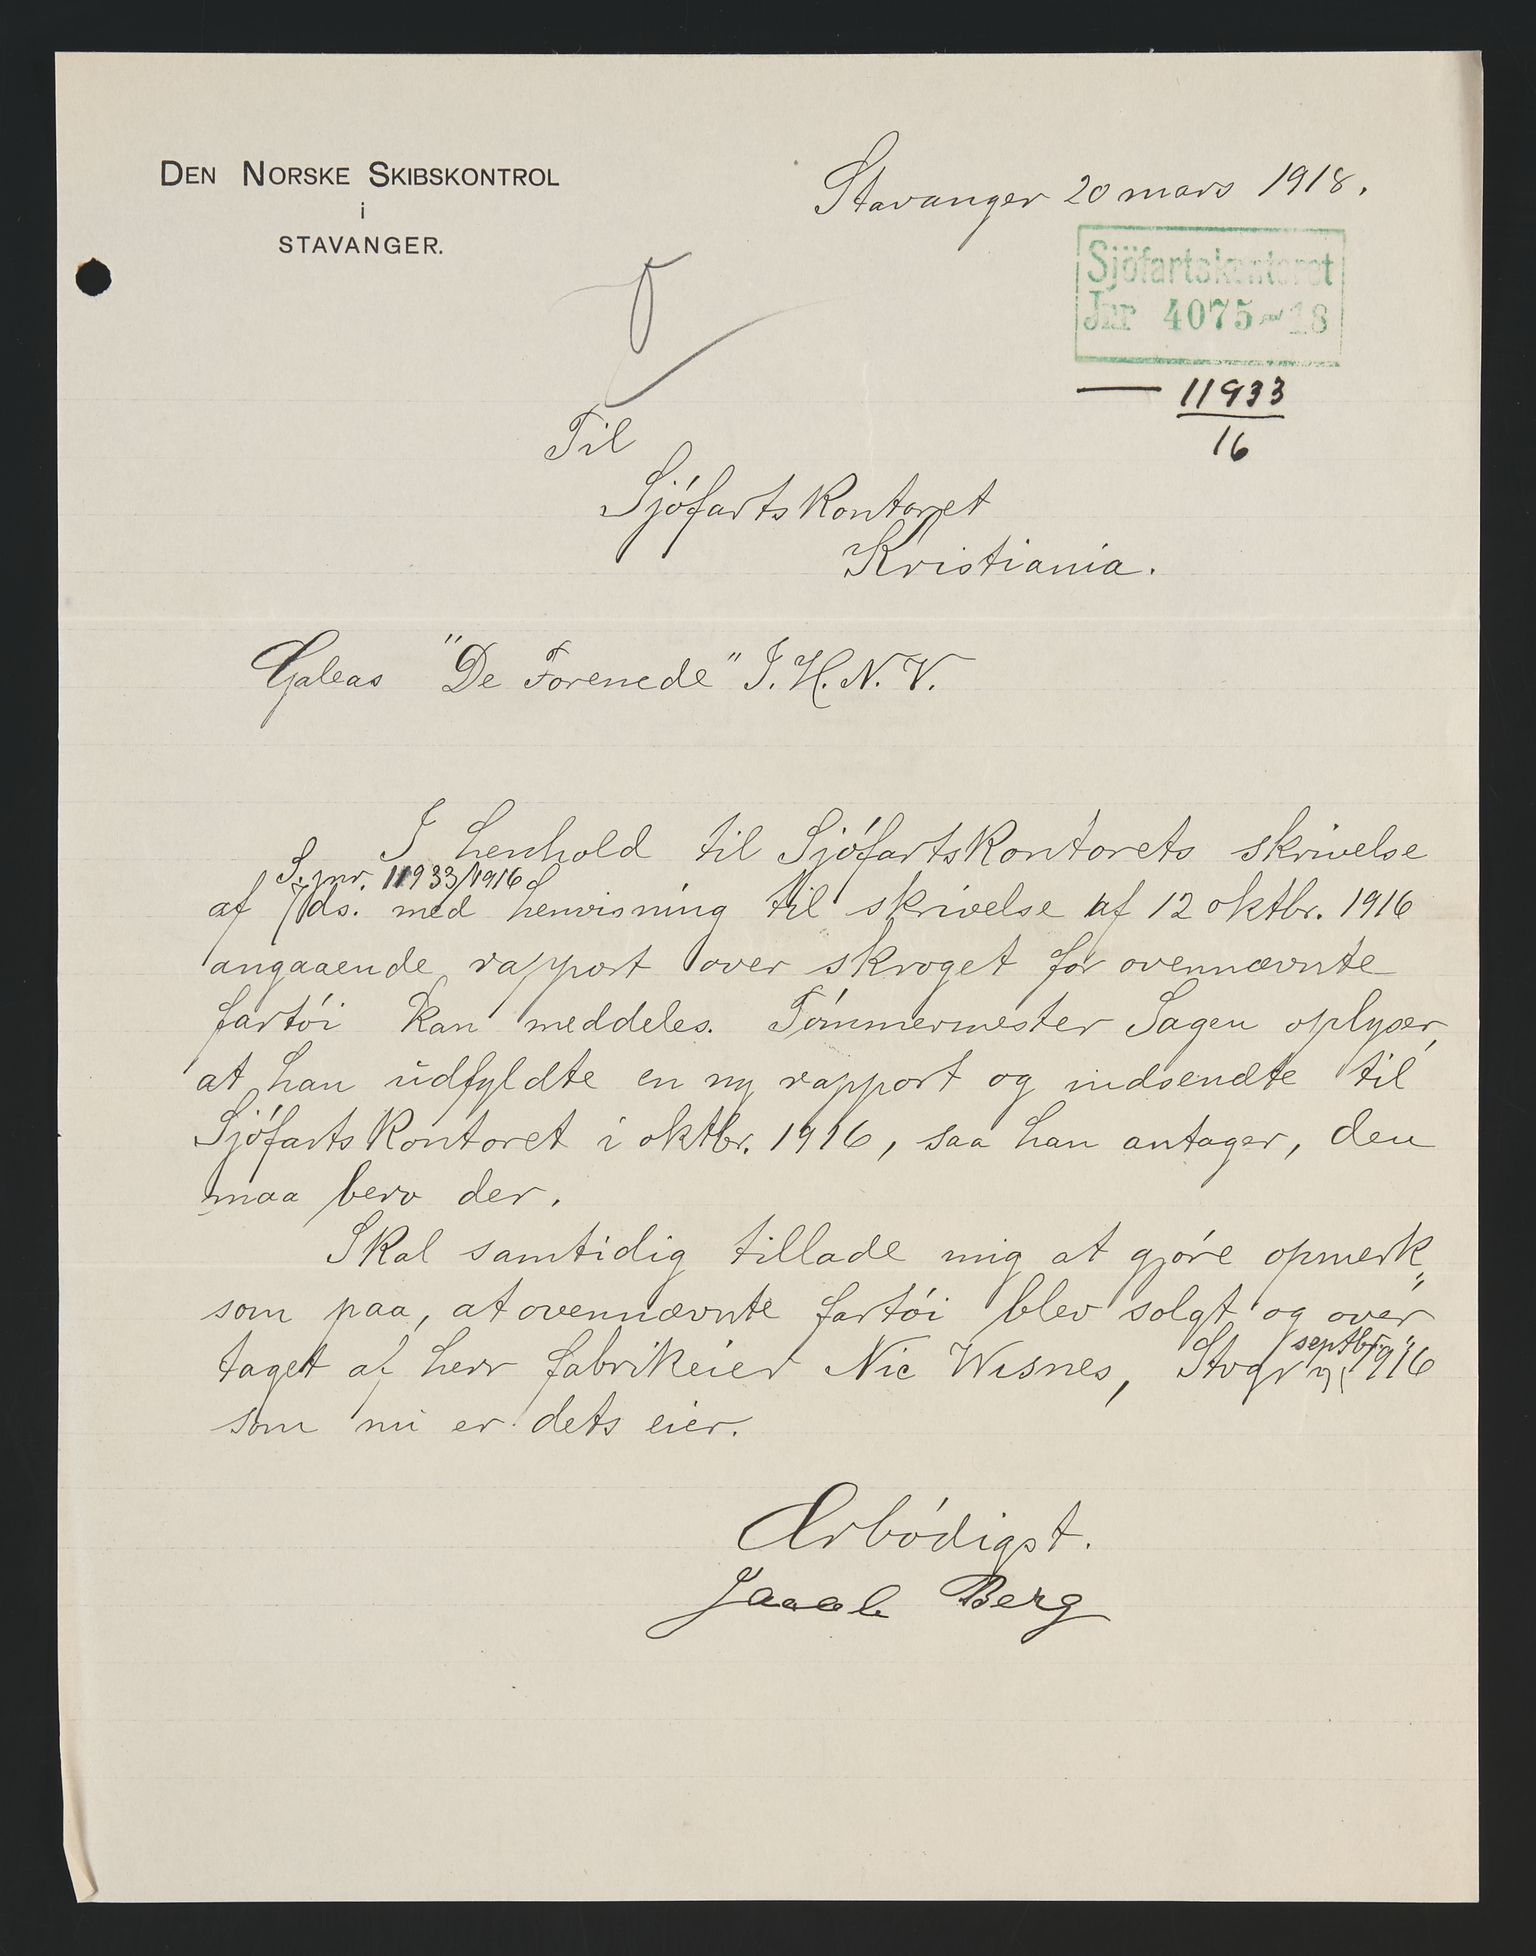 DEN NORSKE SKIBSKONTROL
i
STAVANGER.
Stavanger 20 mars 1918.
Sjöfartskontoret
Jnr 4075-18
— 11933
16
Til
Sjófartskontoret
Kristiania.
Galeas "De Forenede" J. H. N. V.
I henhold til Sjófartskontorets skrivelse
S. jnr. 11933/1916
af 7 ds. med henvisning til skrivelse af 12 oktbr. 1916
angaaende rapport over skroget for ovennævnte
fartói kan meddeles. Tómmermester Sagen oplyser,
at han udfyldte en ny rapport og indsendte til
Sjófartskontoret i oktbr. 1916, saa han antager, den
maa bero der.
Skal samtidig tillade mig at gjóre opmerk„
som paa, at ovennævnte fartói blev solgt og over„
taget af herr fabrikeier Nic Wisnes, Stvgr septbr. 1916
som nu er dets eier.
Ærbódigst.
Jacob Berg